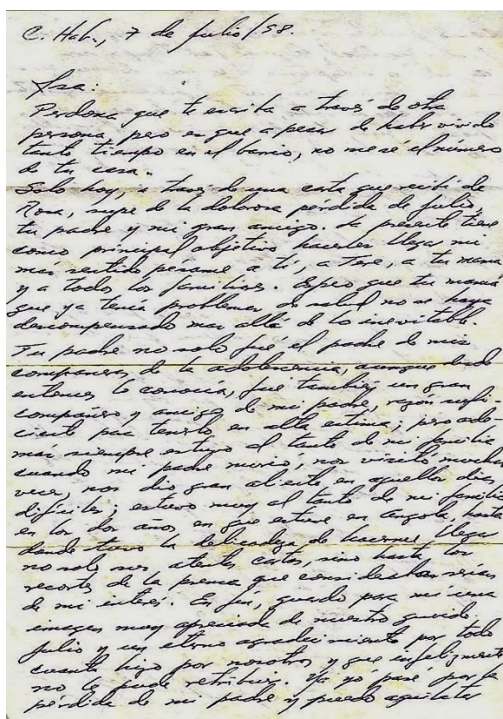 C. Hab., 7 de julio/98.
Isa:
Perdona que te escriba a través de otra
persona, pero es que a pesar de haber vivido
tanto tiempo en el barrio, no me sé el número
de tu casa.
Solo hoy, a través de una carta que recibí de
Rosa, supe de la dolorosa pérdida de Julio,
tu padre y mi gran amigo. La presente tiene
como principal objetivo hacerles llegar mi
mas sentido pésame a tí, a Tere, a tu mamá
y a todos los familiares. Espero que tu mamá
que ya tenía problemas de salud no se haya
descompensado mas allá de lo inevitable.
Tu padre no solo fué el padre de mis
compañeros de la adolescencia, aunque desde
entonces lo conocía, fue también un gran
compañero y amigo de mi padre, razón sufi-
ciente para tenerlo en alta estima; pero ade-
mas siempre estuvo al tanto de mi familia
cuando mi padre murió, nos visitó muchas
veces, nos dio gran aliento en aquellos días
difíciles; estuvo muy al tanto de mi familia
en los dos años en que estuve en Angola, hasta
donde tuvo la delicadeza de hacerme llegar
no solo sus atentas cartas, sino hasta los
recortes de la prensa que consideraba serían
de mi interés. En fin, guardo para mi una
imagen muy apreciada de nuestro querido
Julio y un eterno agradecimiento por todo
cuanto hizo por nosotros y que infelizmente
no le pude retribuir. Ya yo pasé por la
pérdida de mi padre y puedo aquilatar